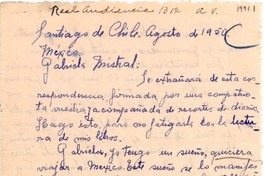 Real Audiencia 1312 A. V.
19911
Santiago de Chile. Agosto de 1950
México.
Gabriela Mistral:
Se extrañará de esta cor
respondencia formada por una compatrio
ta nuestra, acompañada de recortes de diario.
Hago esto, para no fatigarla con la lectu
ra de mis libros.
Gabriela, yo tengo un sueño, quisiera
viajar a México. Este sueño se lo manifes